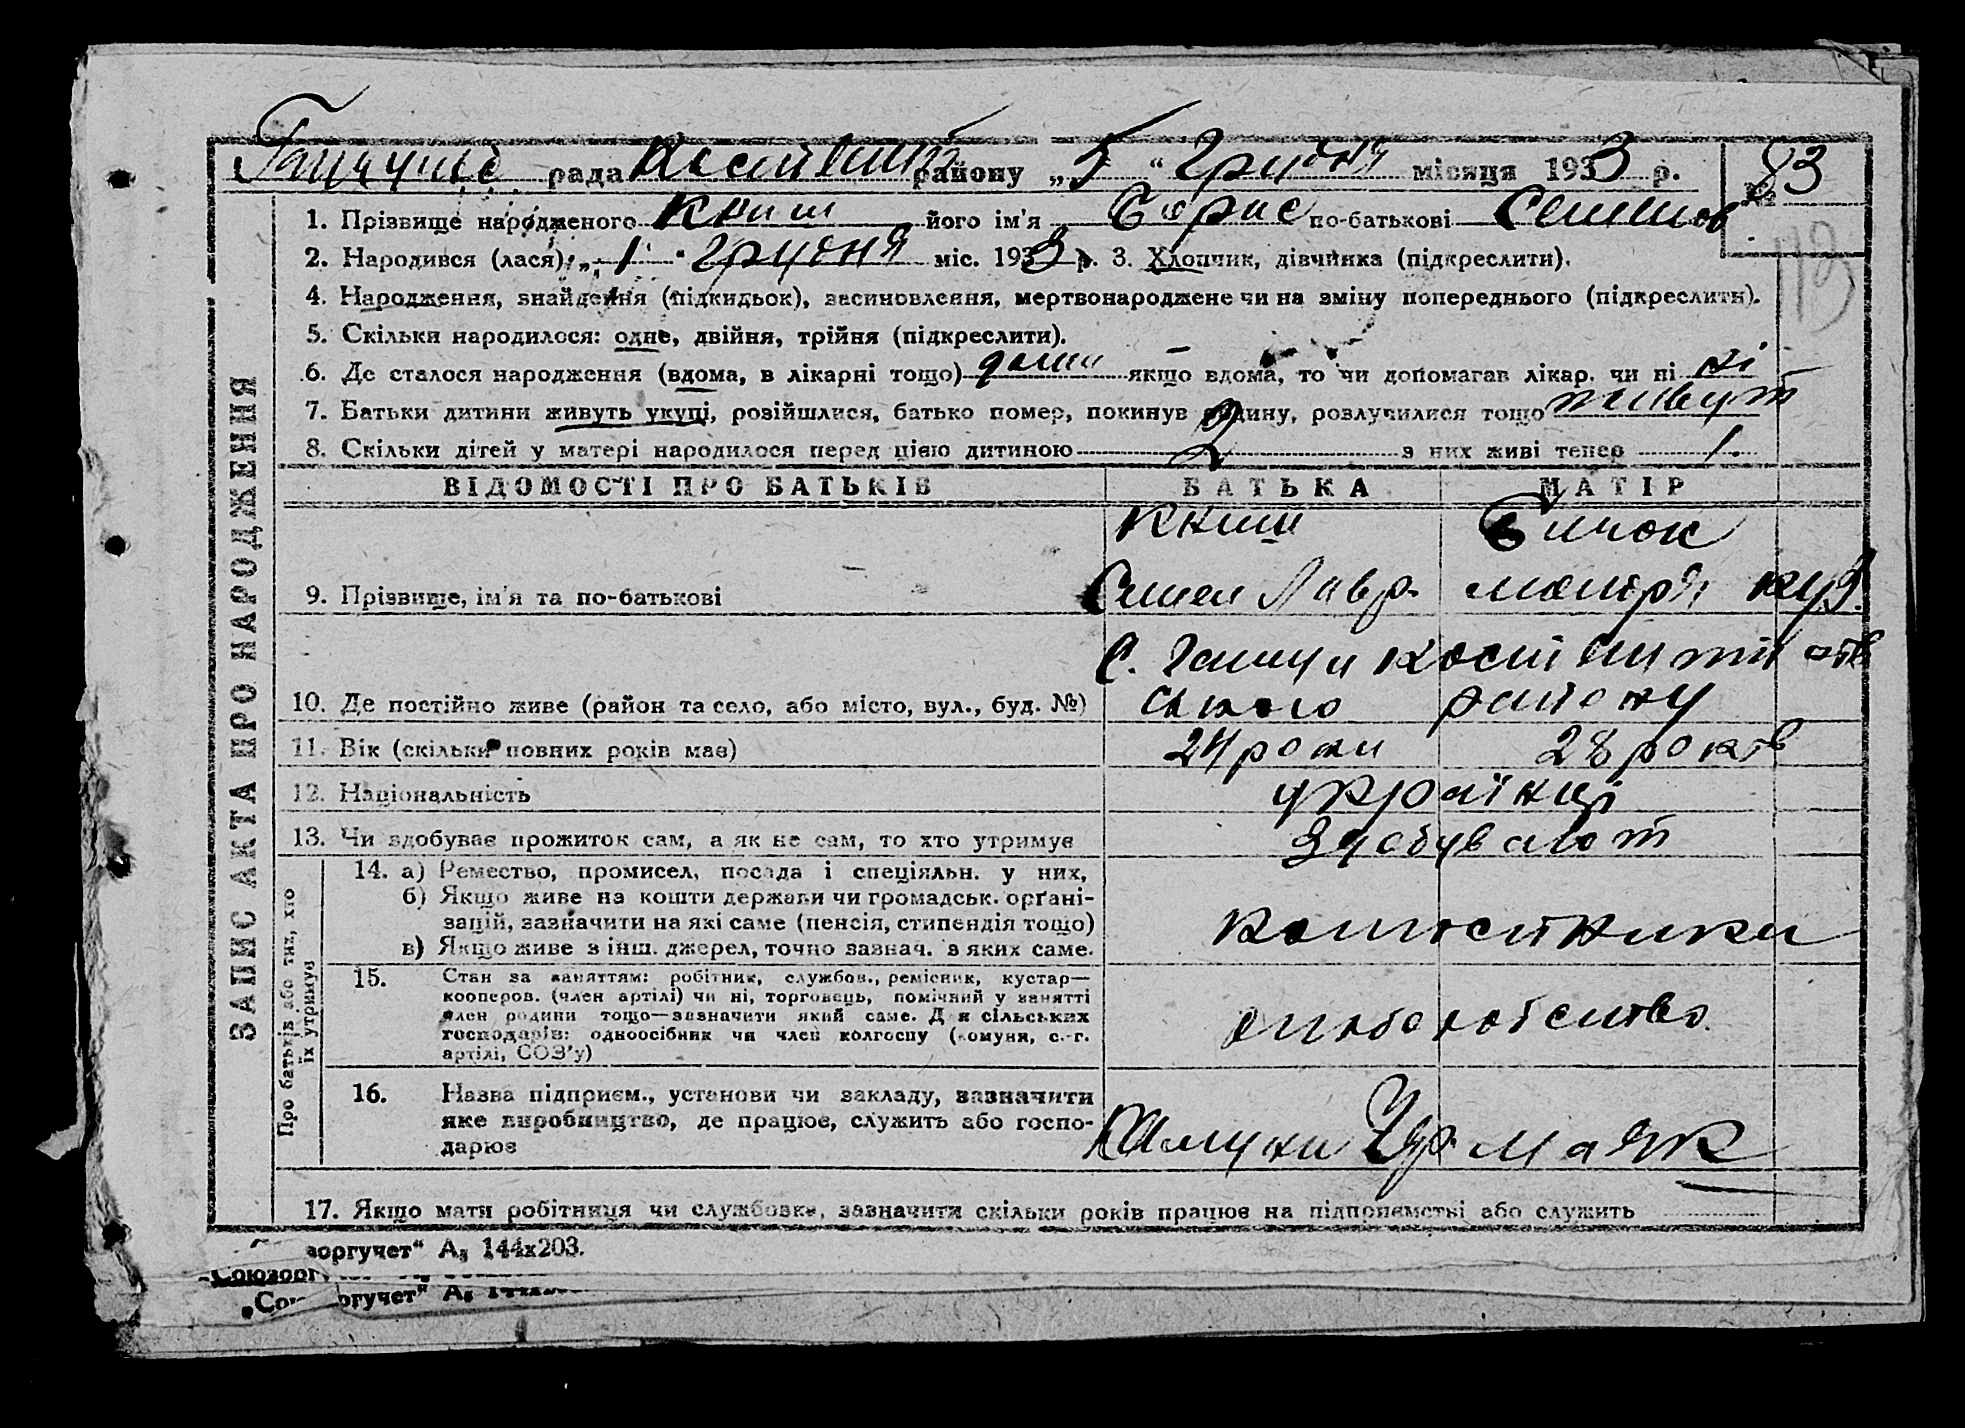 рада району „5“ Грудня місяця 1933 р. № 83
113
ЗАПИС АКТА ПРО НАРОДЖЕННЯ
1. Прізвище народженого Книш його ім'я Борис по-батькові Семенов
2. Народився (лася) „1“ грудня міс. 1933 р. 3. Хлопчик, дівчинка (підкреслити).
4. Народження, знайдення (підкидьок), засиновлення, мертвонароджене чи на зміну попереднього (підкреслити).
5. Скільки народилося: одне, двійня, трійня (підкреслити).
6. Де сталося народження (вдома, в лікарні тощо) дома якщо вдома, то чи допомагав лікар, чи ні ні
7. Батьки дитини живуть укупі, розійшлися, батько помер, покинув родину, розлучилися тощо живут
8. Скільки дітей у матері народилося перед цією дитиною 2 з них живі тепер 1.
ВІДОМОСТІ ПРО БАТЬКІВ БАТЬКА МАТІР
Книш
9. Прізвище, ім'я та по-батькові Семен Лавр.
С.
10. Де постійно живе (район та село, або місто, вул., буд. №) ського району
11. Вік (скільки повних років має) 24 роки 28 років
12. Національність українці
13. Чи здобуває прожиток сам, а як не сам, то хто утримує здобувают
Про батьків або тих, хто їх утримує
14. а) Ремество, промисел, посада і спеціяльн. у них,
б) Якщо живе на кошти держави чи громадськ. орґані-
зацій, зазначити на які саме (пенсія, стипендія тощо)
в) Якщо живе з інш. джерел, точно зазнач. з яких саме.
колгоспники
15. Стан за заняттям: робітник, службов., ремісник, кустар—
кооперов. (член артілі) чи ні, торговець, помічний у занятті
член родини тощо—зазначити який саме. Для сільських
господарів: одноосібник чи член колгоспу (комуни, с.-г.
артілі, СОЗ'у)
хліборобство.
16. Назва підприєм., установи чи закладу, зазначити
яке виробництво, де працює, служить або госпо-
дарює
Комуни Чер маяк
17. Якщо мати робітниця чи службовка, зазначити скільки років працює на підприємстві або служить
зоргучет“ А₅ 144х203.
„Союзорг
„Сою оргучет“ А₅